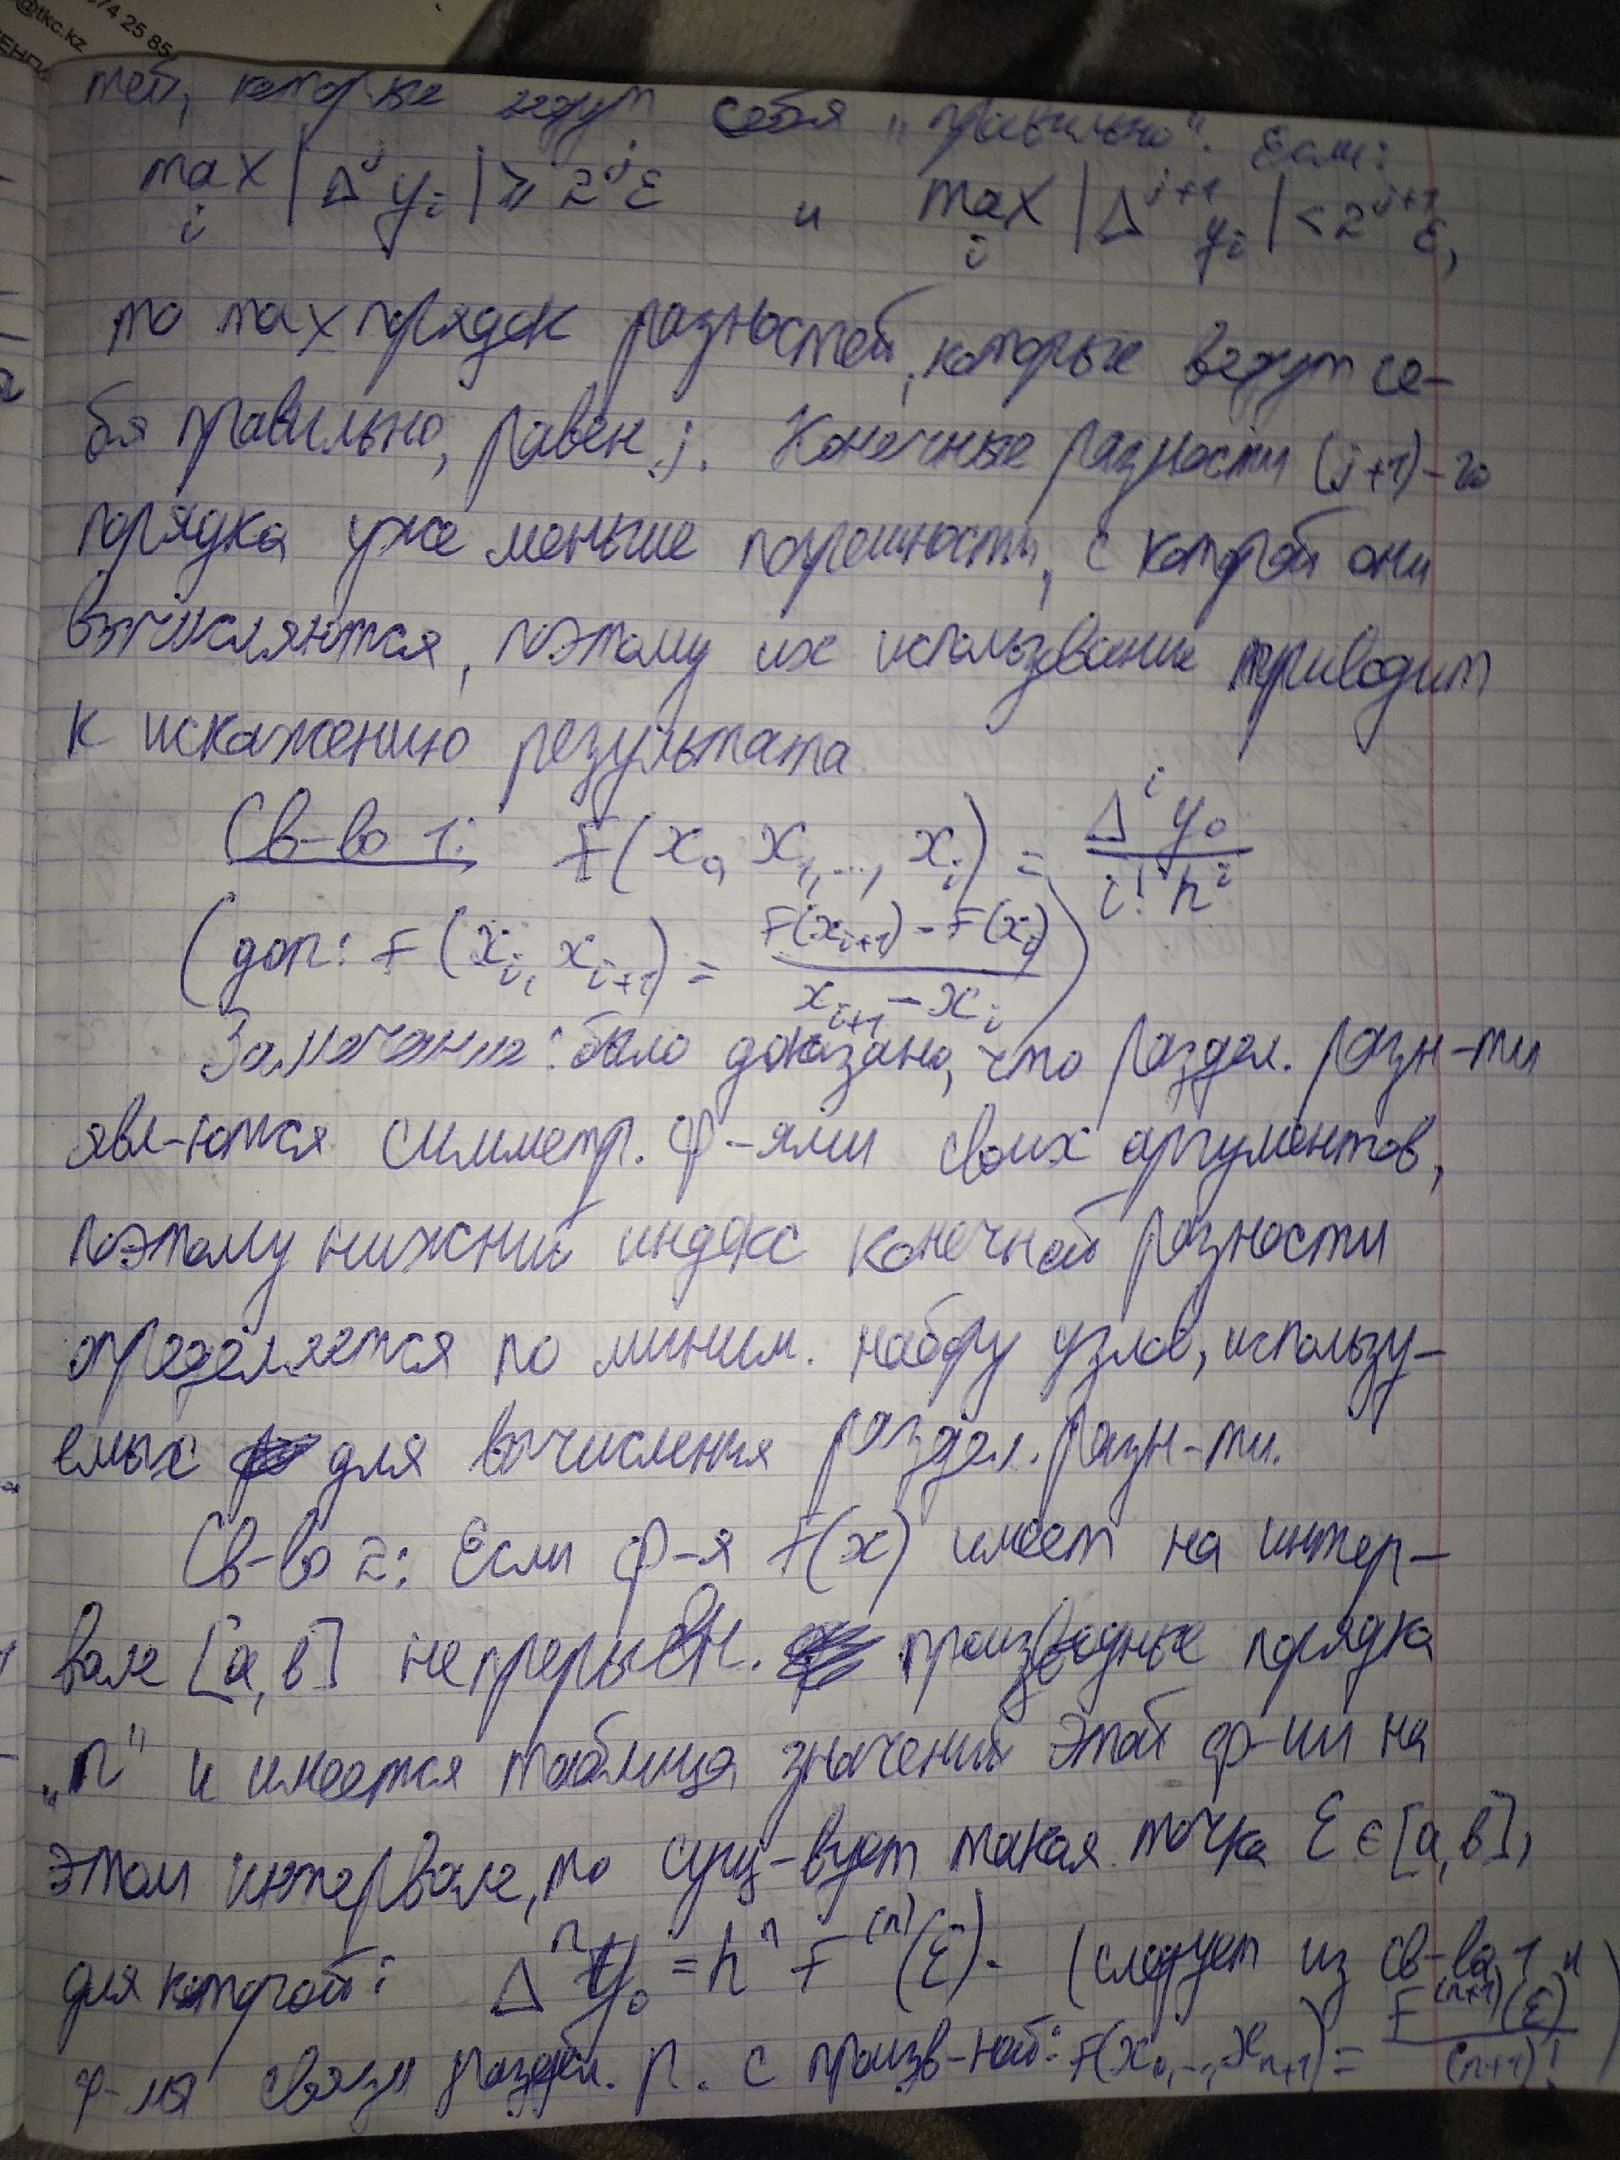 74 25 85
@tkc.kz
тей, которые ведут себя „правильно". Если:
max_i |Δ^j y_i| ≥ 2^j ε и max_i |Δ^{j+1} y_i| < 2^{j+1} ε,
то max порядок разностей, которые ведут се-
бя правильно, равен j. Конечные разности (j+1)-го
порядка уже меньше погрешности, с которой они
вычисляются, поэтому их использование приводит
к искажению результата
Св-во 1: F(x_0, x_1, ..., x_i) = Δ^i y_0 / i! h^i
(доп: F(x_i, x_{i+1}) = F(x_{i+1}) - F(x_i) / x_{i+1} - x_i)
Замечание: было доказано, что раздел. разн-ти
явл-ются симметр. ф-ями своих аргументов,
поэтому нижний индекс конечной разности
определяется по миним. набору узлов, использу-
емых для вычисления раздел. разн-ти.
Св-во 2: Если ф-я F(x) имеет на интер-
вале [a, b] непрерывн. производные порядка
„n" и имеется таблица значений этой ф-ии на
этом интервале, то сущ-вует такая точка ξ ∈ [a, b],
для которой: Δ^n y_0 = h^n F^{(n)}(ξ). (следует из св-ва 1 и
ф-лы связи раздел. р. с произв-ной: F(x_0, ..., x_{n+1}) = F^{(n+1)}(ξ) / (n+1)!)